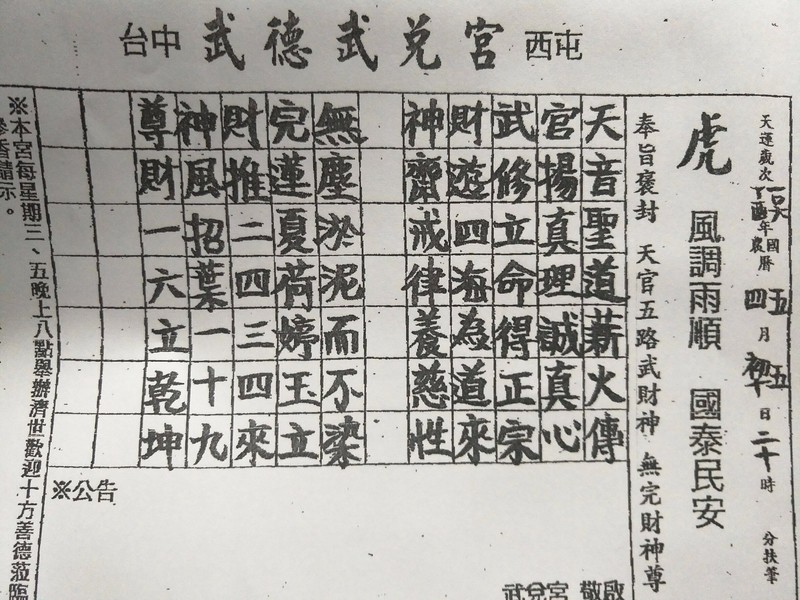 台中 武德武兌宮 西屯
天運歲次 年 國曆 農曆 五四月 初五日二十時 分扶筆
虎 風調雨順 國泰民安
奉旨褒封 天官五路武財神 無完財神尊
天音聖道薪火傳
官揚真理誠真心
武修立命得正宗
財遊四海為道來
神齋戒律養慈性
無塵淤泥而不染
完蓮夏荷婷玉立
財推二四三四來
神風招葉一十九
尊財一六立乾坤
※公告
武兌宮 敬啟
※本宮每星期三、五晚上八點舉辦濟世歡迎十方善德蒞臨
參香請示。